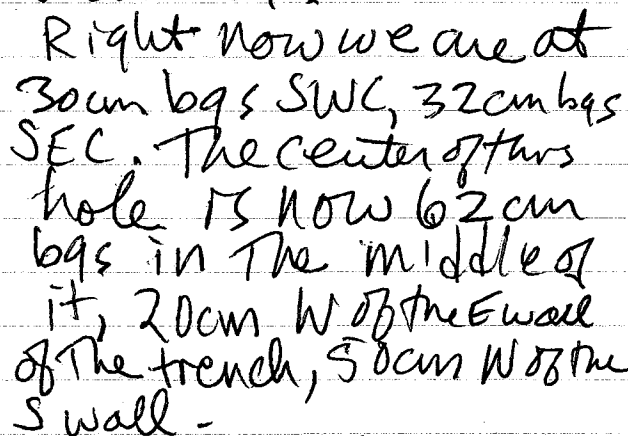 Right now we are at
30cm bgs SWC, 32cm bgs
SEC. The center of this
hole is now 62cm
bgs in the middle of
it, 20cm W of the E wall
of the trench, 50cm N of the
S wall.